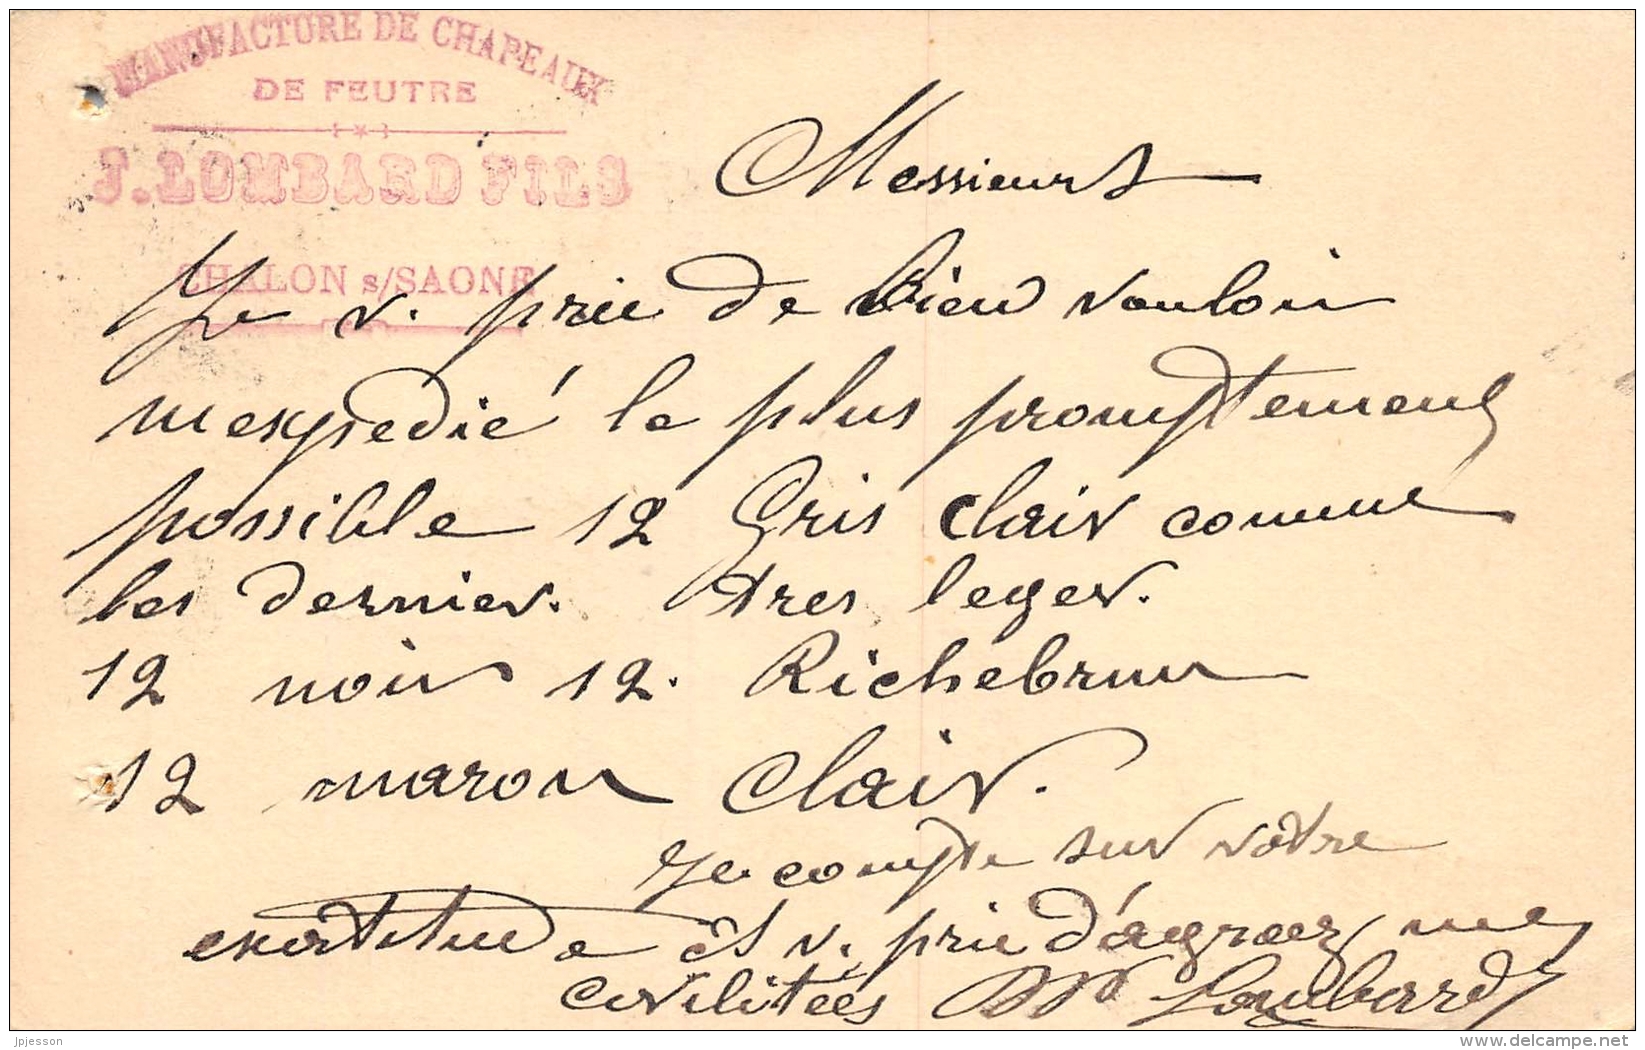 MANUFACTURE DE CHAPEAUX
DE FEUTRE
J. LOMBARD FILS
CHALON s/SAONE
Messieurs
Je v. prie de bien vouloir
m'expedié le plus promptement
possible 12 Gris clair comme
les dernier. tres leger.
12 noir 12. Richebrun
12 maron clair.
Je compte sur votre
exartitude et v. prie d'agreez mes
civilitées Lombard
jpjesson
www.delcampe.net